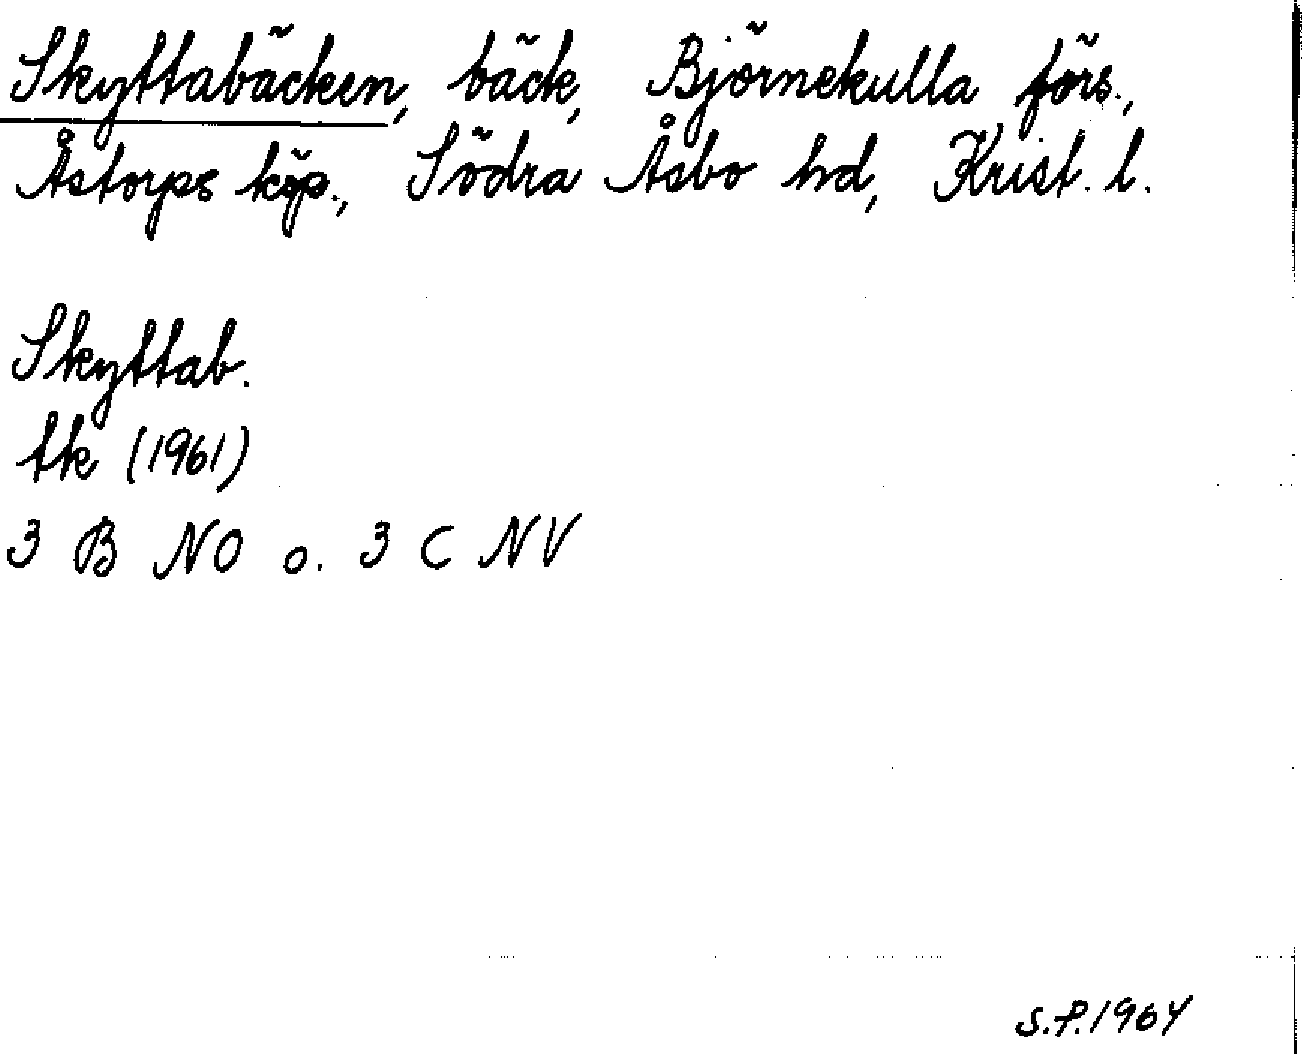 Skyttabäcken, bäck, Björnekulla förs.,
Åstorps köp., Södra Åsbo hd, Krist. l.
Skyttab.
tk (1961)
3 B NO o. 3 C NV
S.P.1964